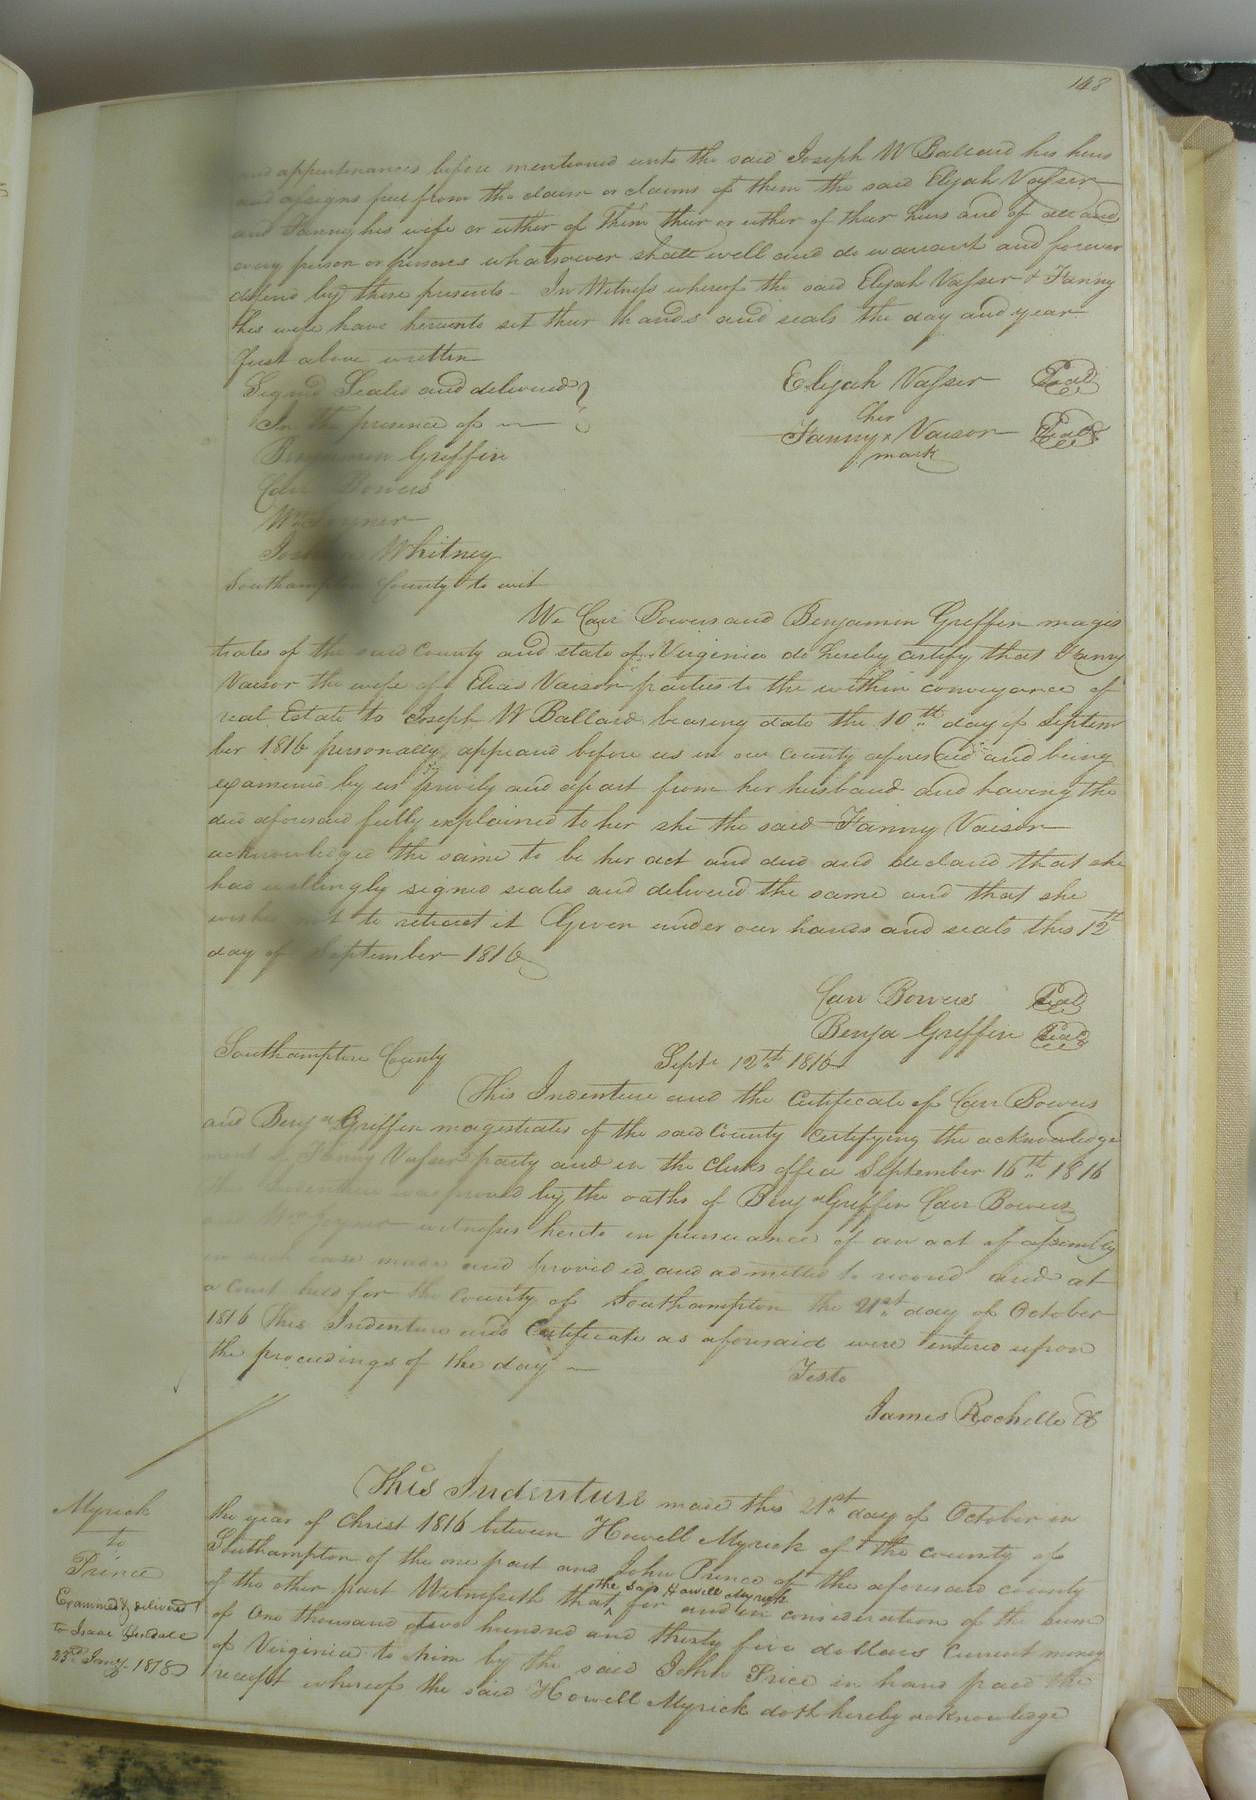 148
and appurtenances before mentioned unto the said Joseph W Ballard his heirs
and assigns free from the claim or claims of them the said Elijah Vasser
and Fanny his wife or either of them their or either of their heirs and of all and
every person or persons whatsoever shall well and do warrant and forever
defend by these presents - In Witness whereof the said Elijah Vasser & Fanny
his wife have hereunto set their hands and seals the day and year
first above written
Signed Sealed and delivered
In the presence of
Elijah Vasser Seal
her
Fanny x Vaiser Seal
mark
Benjamin Griffin
Carr Bowers
Wm Joyner
Whitney
Southampton County to wit
We Carr Bowers and Benjamin Griffin magis
trates of the said County and state of Virginia do hereby certify that Fanny
Vaisor the wife of Elias Vaisor parties to the within conveyance of
real Estate to Joseph W Ballard bearing date the 10th day of Septem
ber 1816 personally appeard before us in our County aforesaid and being
examined by us privily and apart from her husband and having the
deed aforesaid fully explained to her she the said Fanny Vaisor
acknowledged the same to be her act and deed and declared that she
had willingly signed sealed and delivered the same and that she
wishes not to retract it Given under our hands and seals this 12th
day of September 1816
Carr Bowers Seal
Benja Griffin Seal
Southampton County Septr 12th 1816
This Indenture and the Certificate of Carr Bowers
and Benja Griffin magistrates of the said County Certifying the acknowledge
ment of Fanny Vasser party and in the Clerks office September 16th 1816
this Indenture was proved by the oaths of Benja Griffin Carr Bowers
and Wm Joyner witnesses hereto in pursuance of an act of assembly
in such case made and provided and admitted to record and at
a Court held for the County of Southampton the 21st day of October
1816 This Indenture and Certificate as aforesaid were entered upon
the proceedings of the day
Teste
James Rochelle
This Indenture made this 21st day of October in
the year of Christ 1816 between Howell Myrick of the county of
Southampton of the one part and John Prince of the aforesaid county
the said Howell Myrick
of the other part Witnesseth that ^ for and in consideration of the sum
of One thousand two hundred and thirty five dollars Current money
of Virginia to him by the said John Price in hand paid the
receipt whereof the said Howell Myrick doth hereby acknowledge
Myrick
to
Prince
Examined & delivered
to Isaac
23d Jany 1818